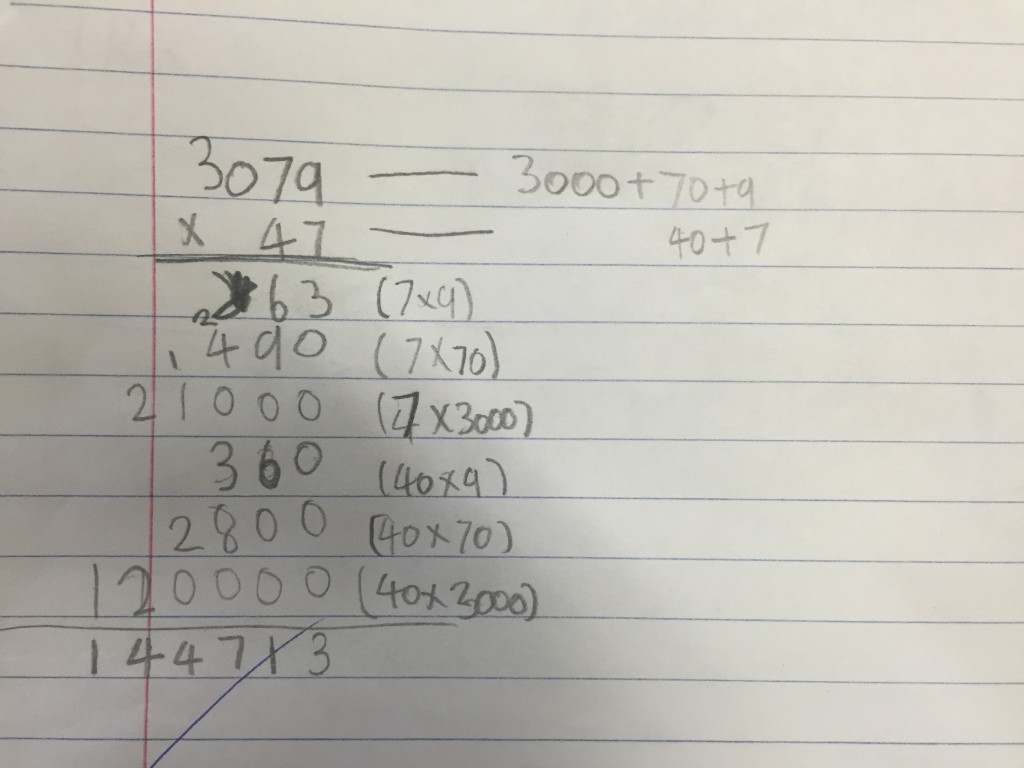 3079 — 3000+70+9
× 47 — 40+7
63 (7×9)
2
490 (7×70)
1
21000 (7×3000)
360 (40×9)
2800 (40×70)
120000 (40×3000)
144713